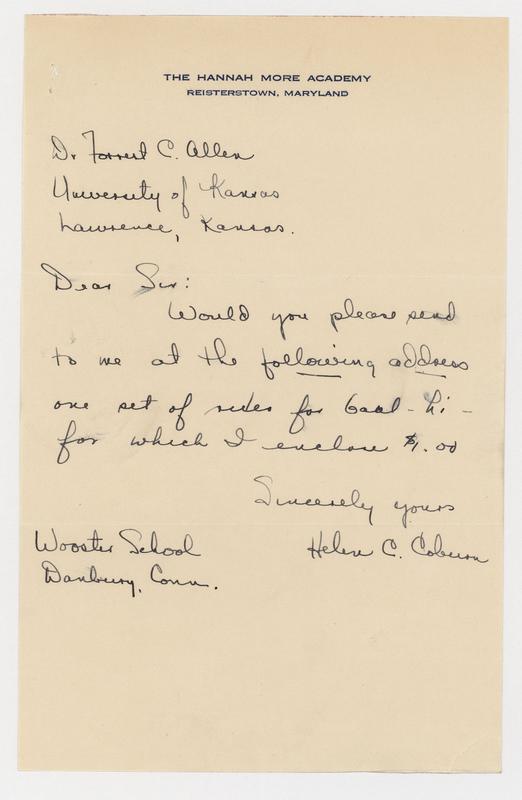 THE HANNAH MORE ACADEMY
REISTERSTOWN, MARYLAND
Dr Forrest C. Allen
University of Kansas
Lawrence, Kansas.
Dear Sir:
Would you please send
to me at the following address
one set of rules for Goal-hi-
for which I enclose $1.00
Sincerely yours
Helen C. Coburn
Wooster School
Danbury, Conn.